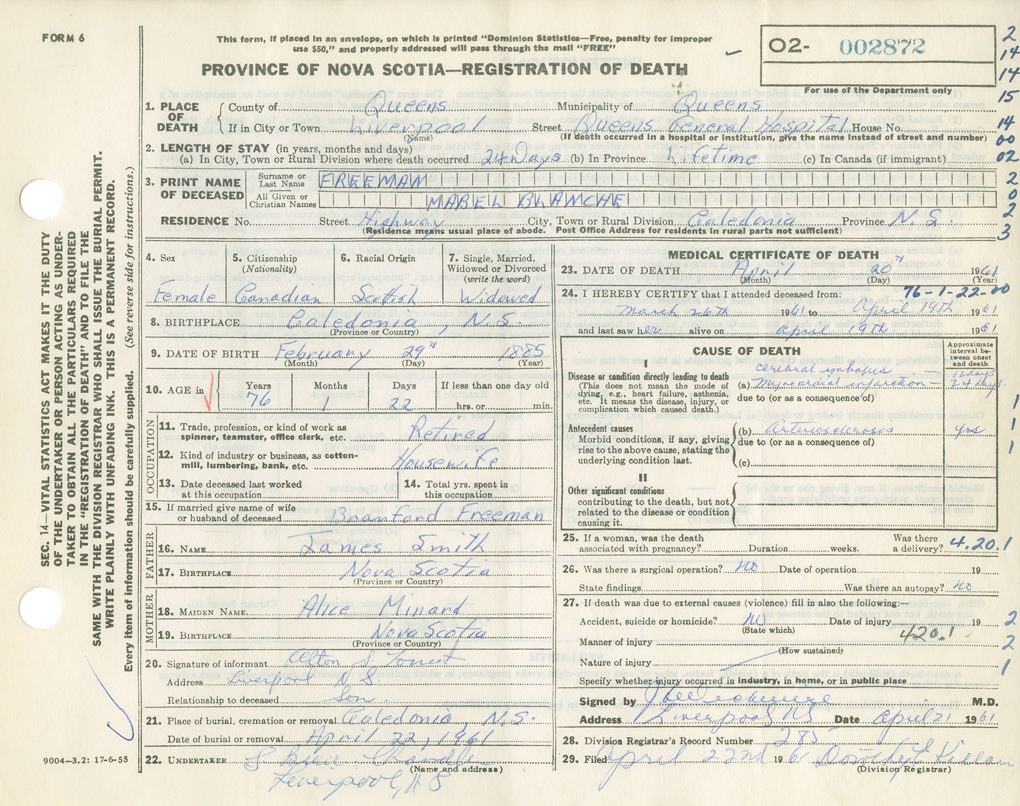 FORM 6
This form, if placed in an envelope, on which is printed "Dominion Statistics—Free, penalty for improper
use $50," and properly addressed will pass through the mail "FREE"
PROVINCE OF NOVA SCOTIA—REGISTRATION OF DEATH
O2- 002872
For use of the Department only
2
14
14
15
14
00
02
2
0
2
3
1. PLACE OF DEATH
County of Queens Municipality of Queens
If in City or Town Liverpool Street Queens General Hospital House No.
(Name) (If death occurred in a hospital or institution, give the name instead of street and number)
2. LENGTH OF STAY (in years, months and days)
(a) In City, Town or Rural Division where death occurred 24 Days (b) In Province Lifetime (c) In Canada (if immigrant)
3. PRINT NAME OF DECEASED
Surname or Last Name FREEMAN
All Given or Christian Names MABEL BLANCHE
RESIDENCE No. Street Highway City, Town or Rural Division Caledonia Province N.S.
(Residence means usual place of abode. Post Office Address for residents in rural parts not sufficient)
4. Sex
Female
5. Citizenship
(Nationality)
Canadian
6. Racial Origin
Scottish
7. Single, Married,
Widowed or Divorced
(write the word)
Widowed
8. BIRTHPLACE Caledonia, N.S.
(Province or Country)
9. DATE OF BIRTH February 29th 1885
(Month) (Day) (Year)
10. AGE in
Years Months Days If less than one day old
76 1 22 hrs. or min.
OCCUPATION
11. Trade, profession, or kind of work as
spinner, teamster, office clerk, etc. Retired
12. Kind of industry or business, as cotton-
mill, lumbering, bank, etc. Housewife
13. Date deceased last worked
at this occupation
14. Total yrs. spent in
this occupation
15. If married give name of wife
or husband of deceased Bramford Freeman
FATHER
16. NAME James Smith
17. BIRTHPLACE Nova Scotia
(Province or Country)
MOTHER
18. MAIDEN NAME Alice Minard
19. BIRTHPLACE Nova Scotia
(Province or Country)
20. Signature of informant Alton S.
Address Liverpool N.S.
Relationship to deceased Son.
21. Place of burial, cremation or removal Caledonia, N.S.
Date of burial or removal April 22, 1961
22. UNDERTAKER
(Name and address)
Liverpool, N.S
MEDICAL CERTIFICATE OF DEATH
23. DATE OF DEATH April 20th 1961
(Month) (Day) (Year)
24. I HEREBY CERTIFY that I attended deceased from: 76-1-22-00
March 26th 1961 to April 19th 1961
and last saw her alive on April 19th 1961
CAUSE OF DEATH
Approximate
interval be-
tween onset
and death
I
Disease or condition directly leading to death
(This does not mean the mode of
dying, e.g., heart failure, asthenia,
etc. It means the disease, injury, or
complication which caused death.)
cerebral embolus — 12 days
(a) myocardial infarction — 24 days
due to (or as a consequence of)
Antecedent causes
Morbid conditions, if any, giving
rise to the above cause, stating the
underlying condition last.
(b) Arteriosclerosis yrs
due to (or as a consequence of)
(c)
II
Other significant conditions
contributing to the death, but not
related to the disease or condition
causing it.
1
1
1
25. If a woman, was the death
associated with pregnancy? Duration weeks. Was there
a delivery? 4.20.1
26. Was there a surgical operation? No Date of operation 19
State findings Was there an autopsy? No
27. If death was due to external causes (violence) fill in also the following:—
Accident, suicide or homicide? No Date of injury 19
(State which) 420.1
Manner of injury
(How sustained)
Nature of injury
Specify whether injury occurred in industry, in home, or in public place
2
2
1
Signed by M.D.
Address Liverpool NS Date April 21 1961
28. Division Registrar's Record Number 285
29. Filed April 22nd 196
(Division Registrar)
9004—3.2: 17-6-55
SEC. 14—VITAL STATISTICS ACT MAKES IT THE DUTY
OF THE UNDERTAKER OR PERSON ACTING AS UNDER-
TAKER TO OBTAIN ALL THE PARTICULARS REQUIRED
IN THE "REGISTRATION OF DEATH" AND TO FILE THE
SAME WITH THE DIVISION REGISTRAR WHO SHALL ISSUE THE BURIAL PERMIT.
WRITE PLAINLY WITH UNFADING INK. THIS IS A PERMANENT RECORD.
Every item of information should be carefully supplied. (See reverse side for instructions.)